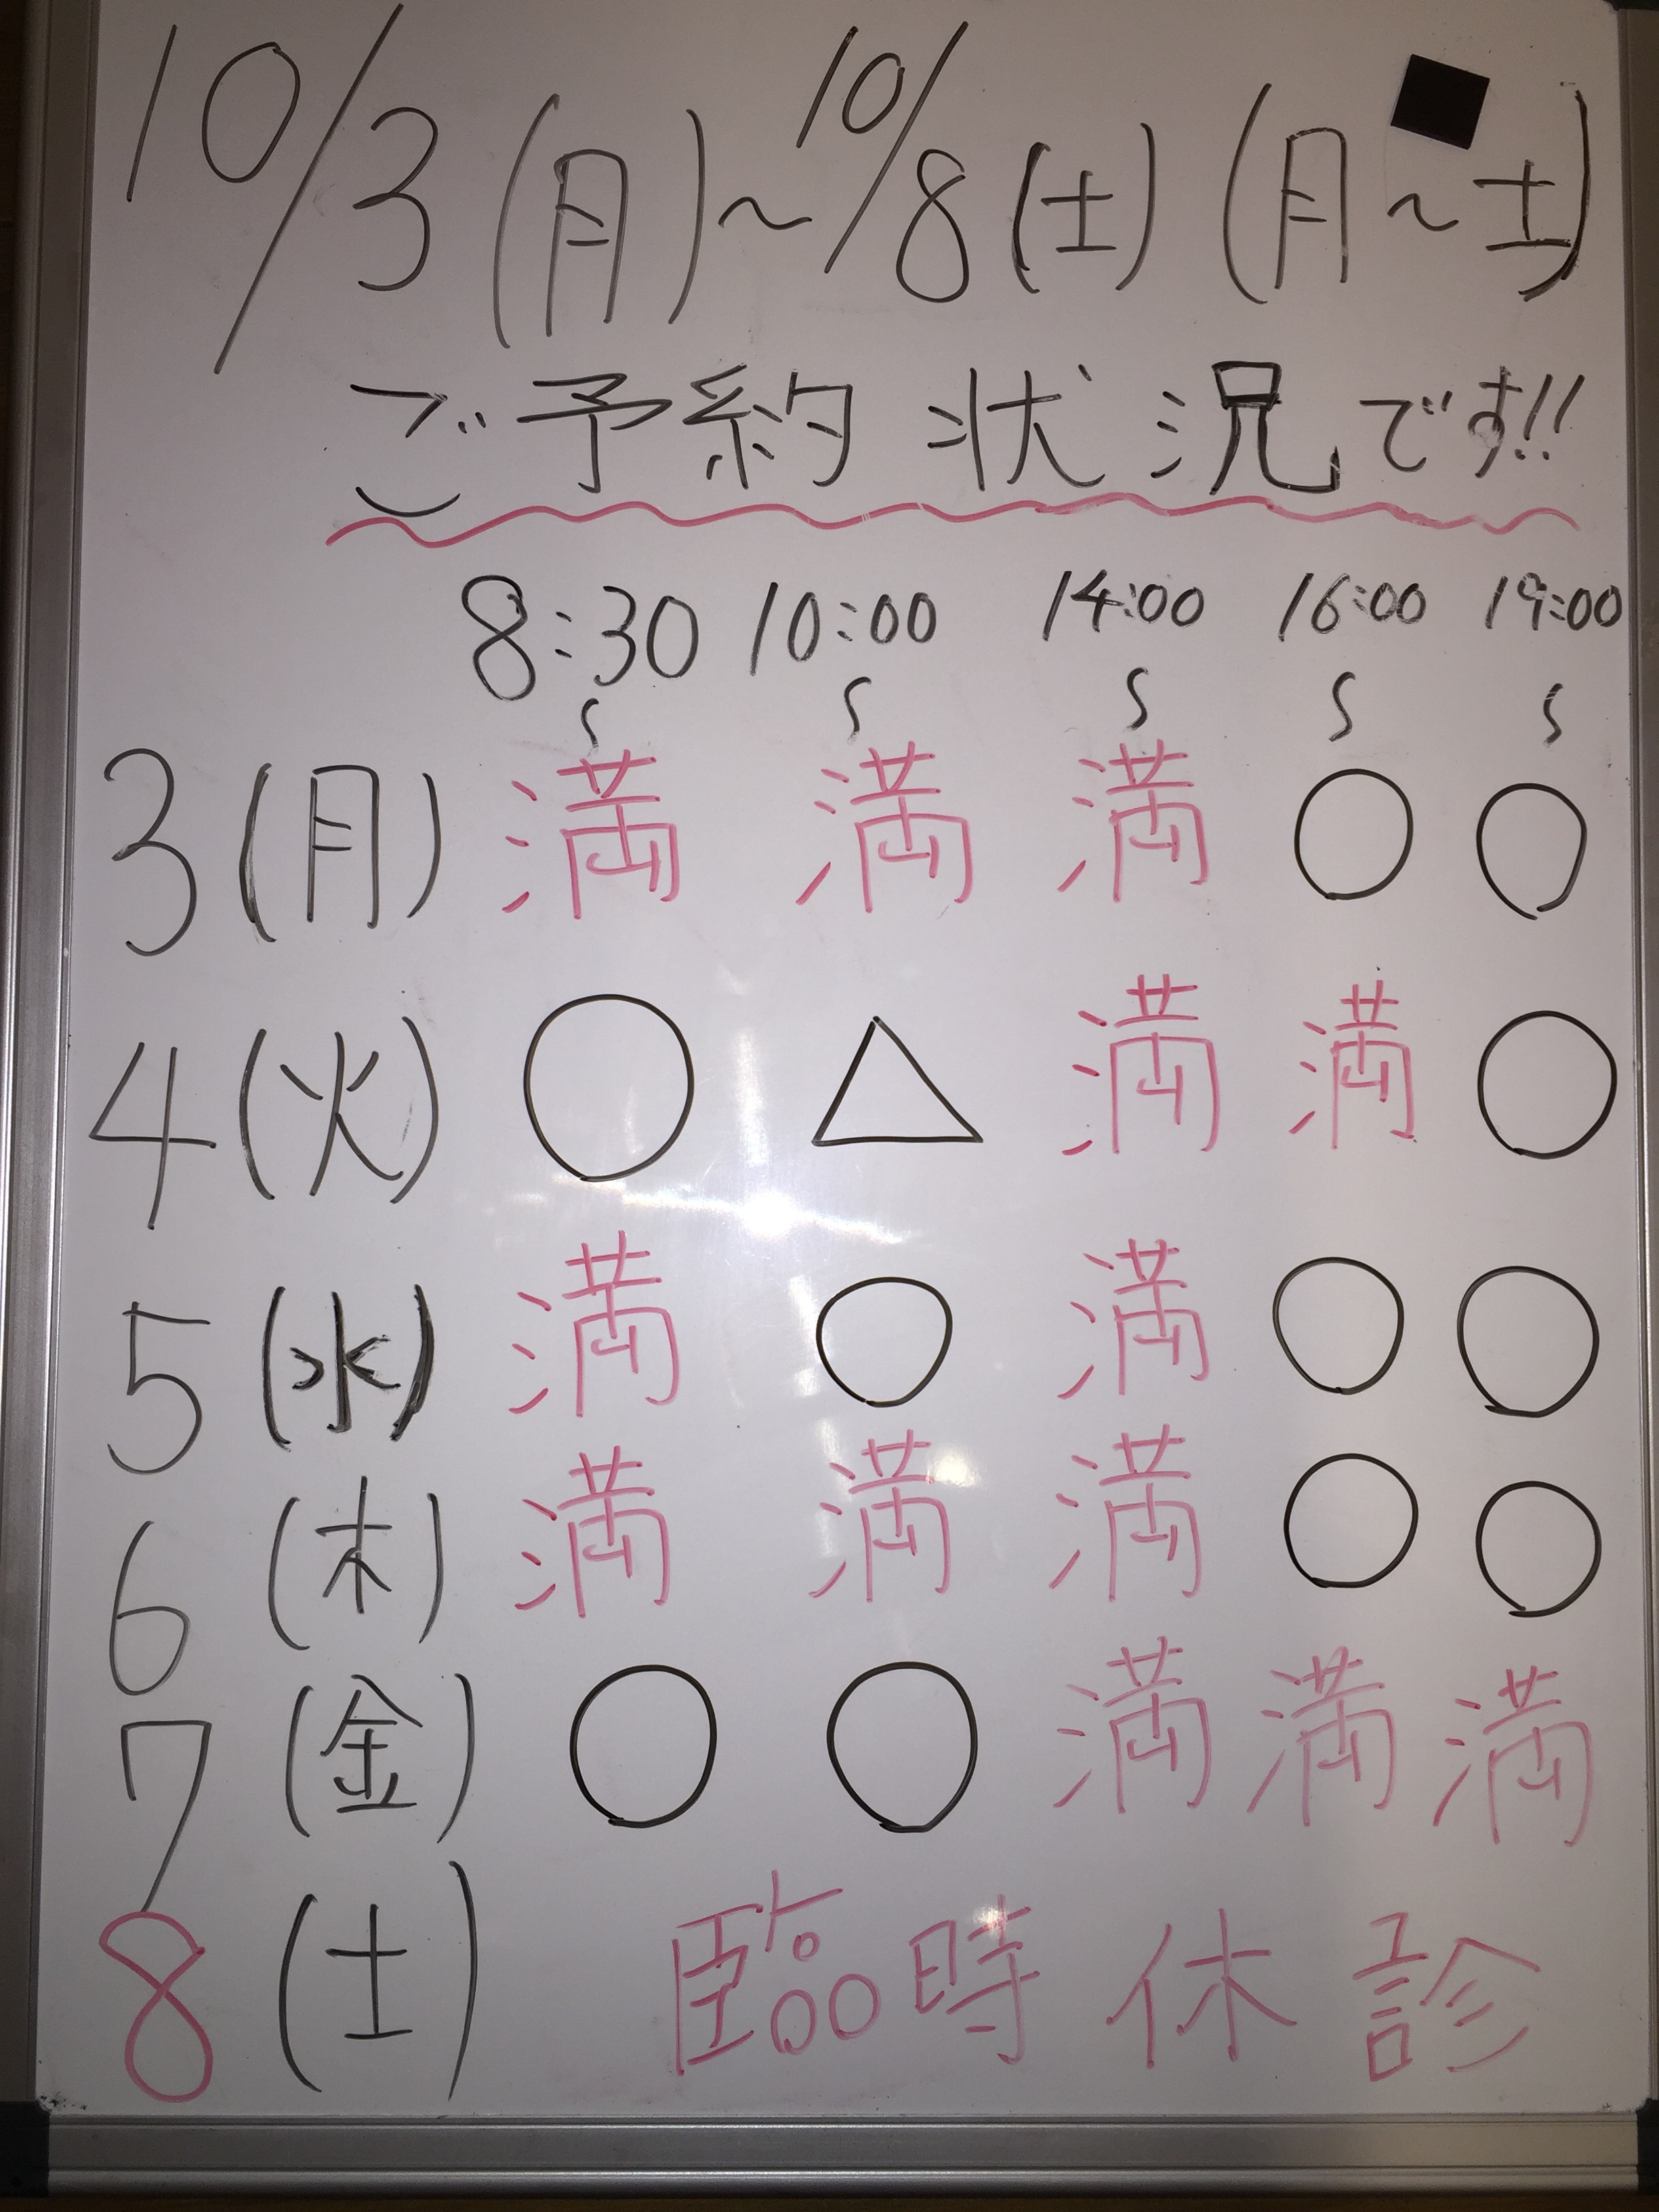 10/3(月)～10/8(土)(月～土)
ご予約状況です!!
8:30～ 10:00～ 14:00～ 16:00～ 19:00～
3(月) 満 満 満 ○ ○
4(火) ○ △ 満 満 ○
5(水) 満 ○ 満 ○ ○
6(木) 満 満 満 ○ ○
7(金) ○ ○ 満 満 満
8(土) 臨時休診